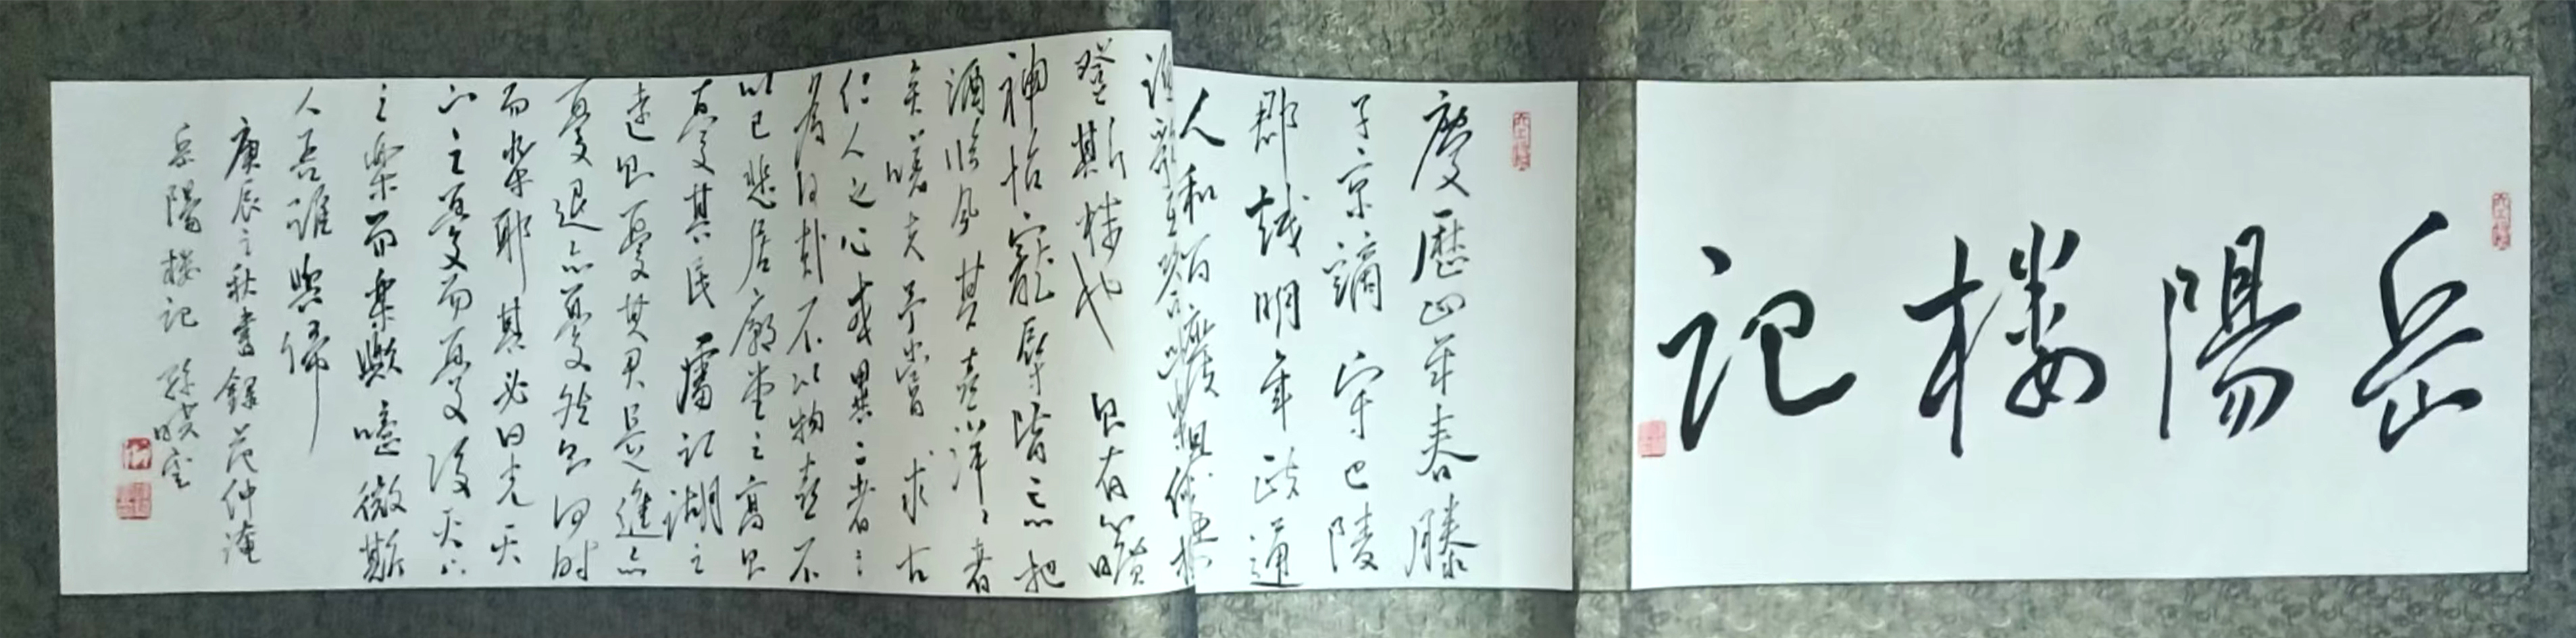 岳陽楼記
慶歷四年春滕
子京謫守巴陵
郡越明年政通
人和百廢
登斯楼也則有心曠
神怡寵辱皆忘把
酒臨風其喜洋洋者
矣嗟夫予嘗求古
仁人之心或異二者之
為何哉不以物喜不
以己悲居廟堂之高則
憂其民處江湖之
遠則憂其君是進亦
憂退亦憂然則何時
而樂耶其必曰先天
下之憂而憂後天下
之樂而樂歟噫微斯
人吾誰與歸
庚辰之秋書錄范仲淹
岳陽楼記 孫曉雲